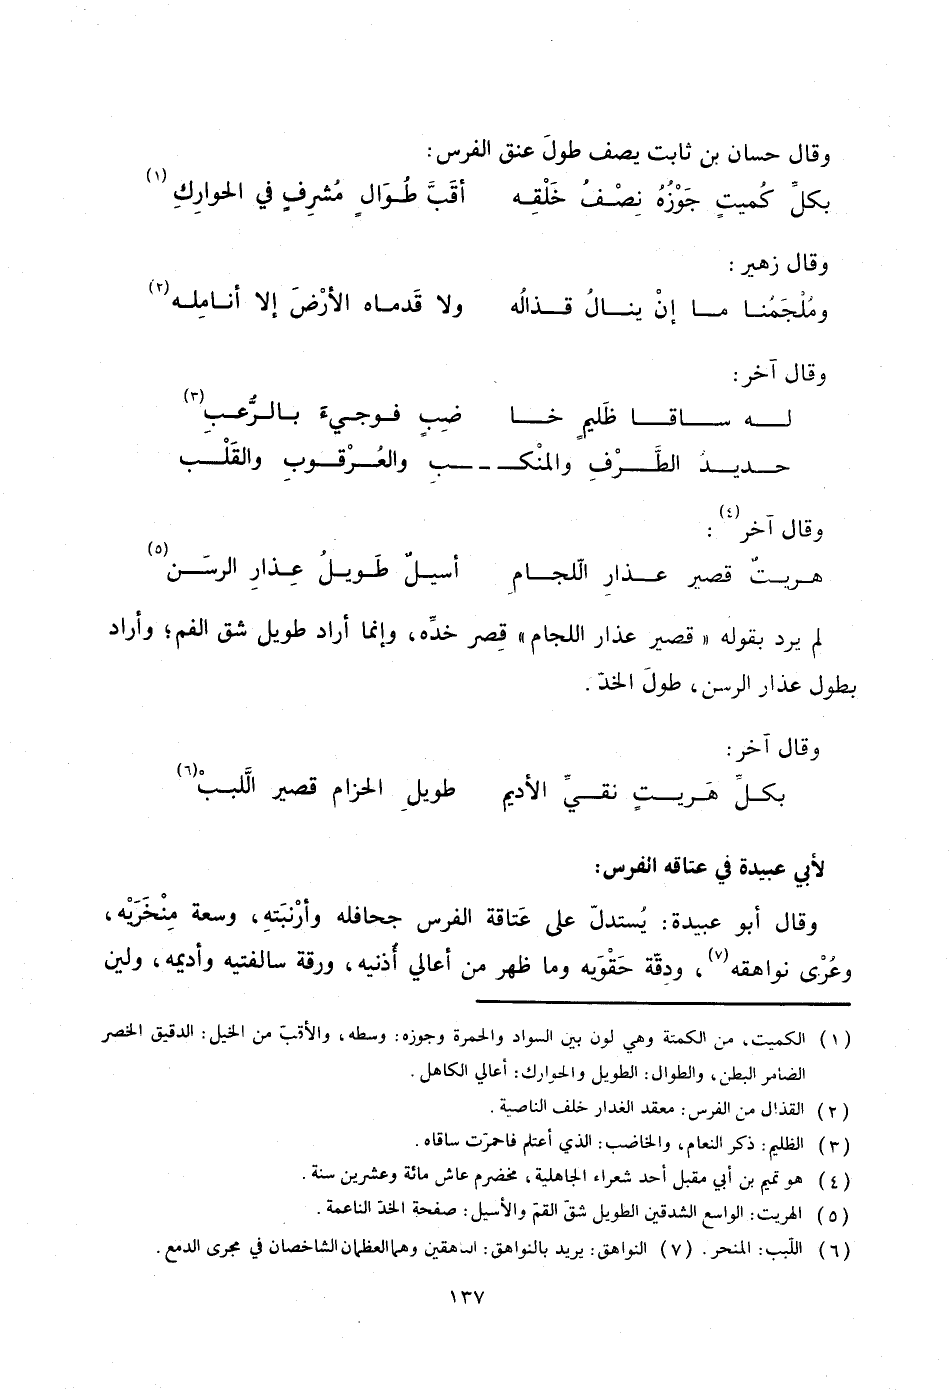 وقال حسان بن ثابت يصف طولَ عنق الفرس:
بكلِّ كُميتٍ جَوْزُهُ نِصْفُ خَلْقِه أقَبَّ طُوَالٍ مُشرِفٍ في الحوارِكِ (١)
وقال زهير:
ومُلْجَمُنا ما إنْ ينالُ قذالُه ولا قَدماه الأرْضَ إلا أناملِه (٢)
وقال آخر:
له ساقا ظَليمٍ خا ضِبٍ فوجيءَ بالرُّعبِ (٣)
حديدُ الطَّرْفِ والمنْكبِ والعُرْقوبِ والقَلْبِ
وقال آخر (٤):
هريتٌ قصير عذارِ الّلجامِ أسيلٌ طَويلُ عِذارِ الرسَن (٥)
لم يرد بقوله « قصير عذار اللجام» قِصر خدِّه، وإنما أراد طويل شق الفم؛ وأراد
بطول عذار الرسن، طولَ الخدّ.
وقال آخر:
بكلِّ هَريتٍ نقيِّ الأديم طويلِ الحزام قصير الَّلببْ (٦)
لأبي عبيدة في عتاقه الفرس:
وقال أبو عبيدة: يُستدلّ على عَتاقة الفرس جحافله وأرْنبَتهِ، وسعة مِنْخَرَيْه،
وعُرْى نواهقه (٧)، ودِقّة حَقْوَيه وما ظهر من أعالي أُذنيه، ورقة سالفتيه وأديمه، ولين
(١) الكميت، من الكمتة وهي لون بين السواد والحمرة وجوزه: وسطه، والأقبّ من الخيل: الدقيق الخصر
الضامر البطن، والطوال: الطويل والحوارك: أعالي الكاهل.
(٢) القذال من الفرس: معقد الغدار خلف الناصية.
(٣) الظليم: ذكر النعام، والخاضب: الذي أعتلم فاحمرّت ساقاه.
(٤) هو تميم بن أبي مقبل أحد شعراء الجاهلية، مخضرم عاش مائة وعشرين سنة.
(٥) الهريت: الواسع الشدقين الطويل شقّ القمّ والأسيل: صفحة الخدّ الناعمة.
(٦) اللّبب: المنحر. (٧) النواهق: يريد بالنواهق: وهما العظمان الشاخصان في مجرى الدمع.
١٣٧